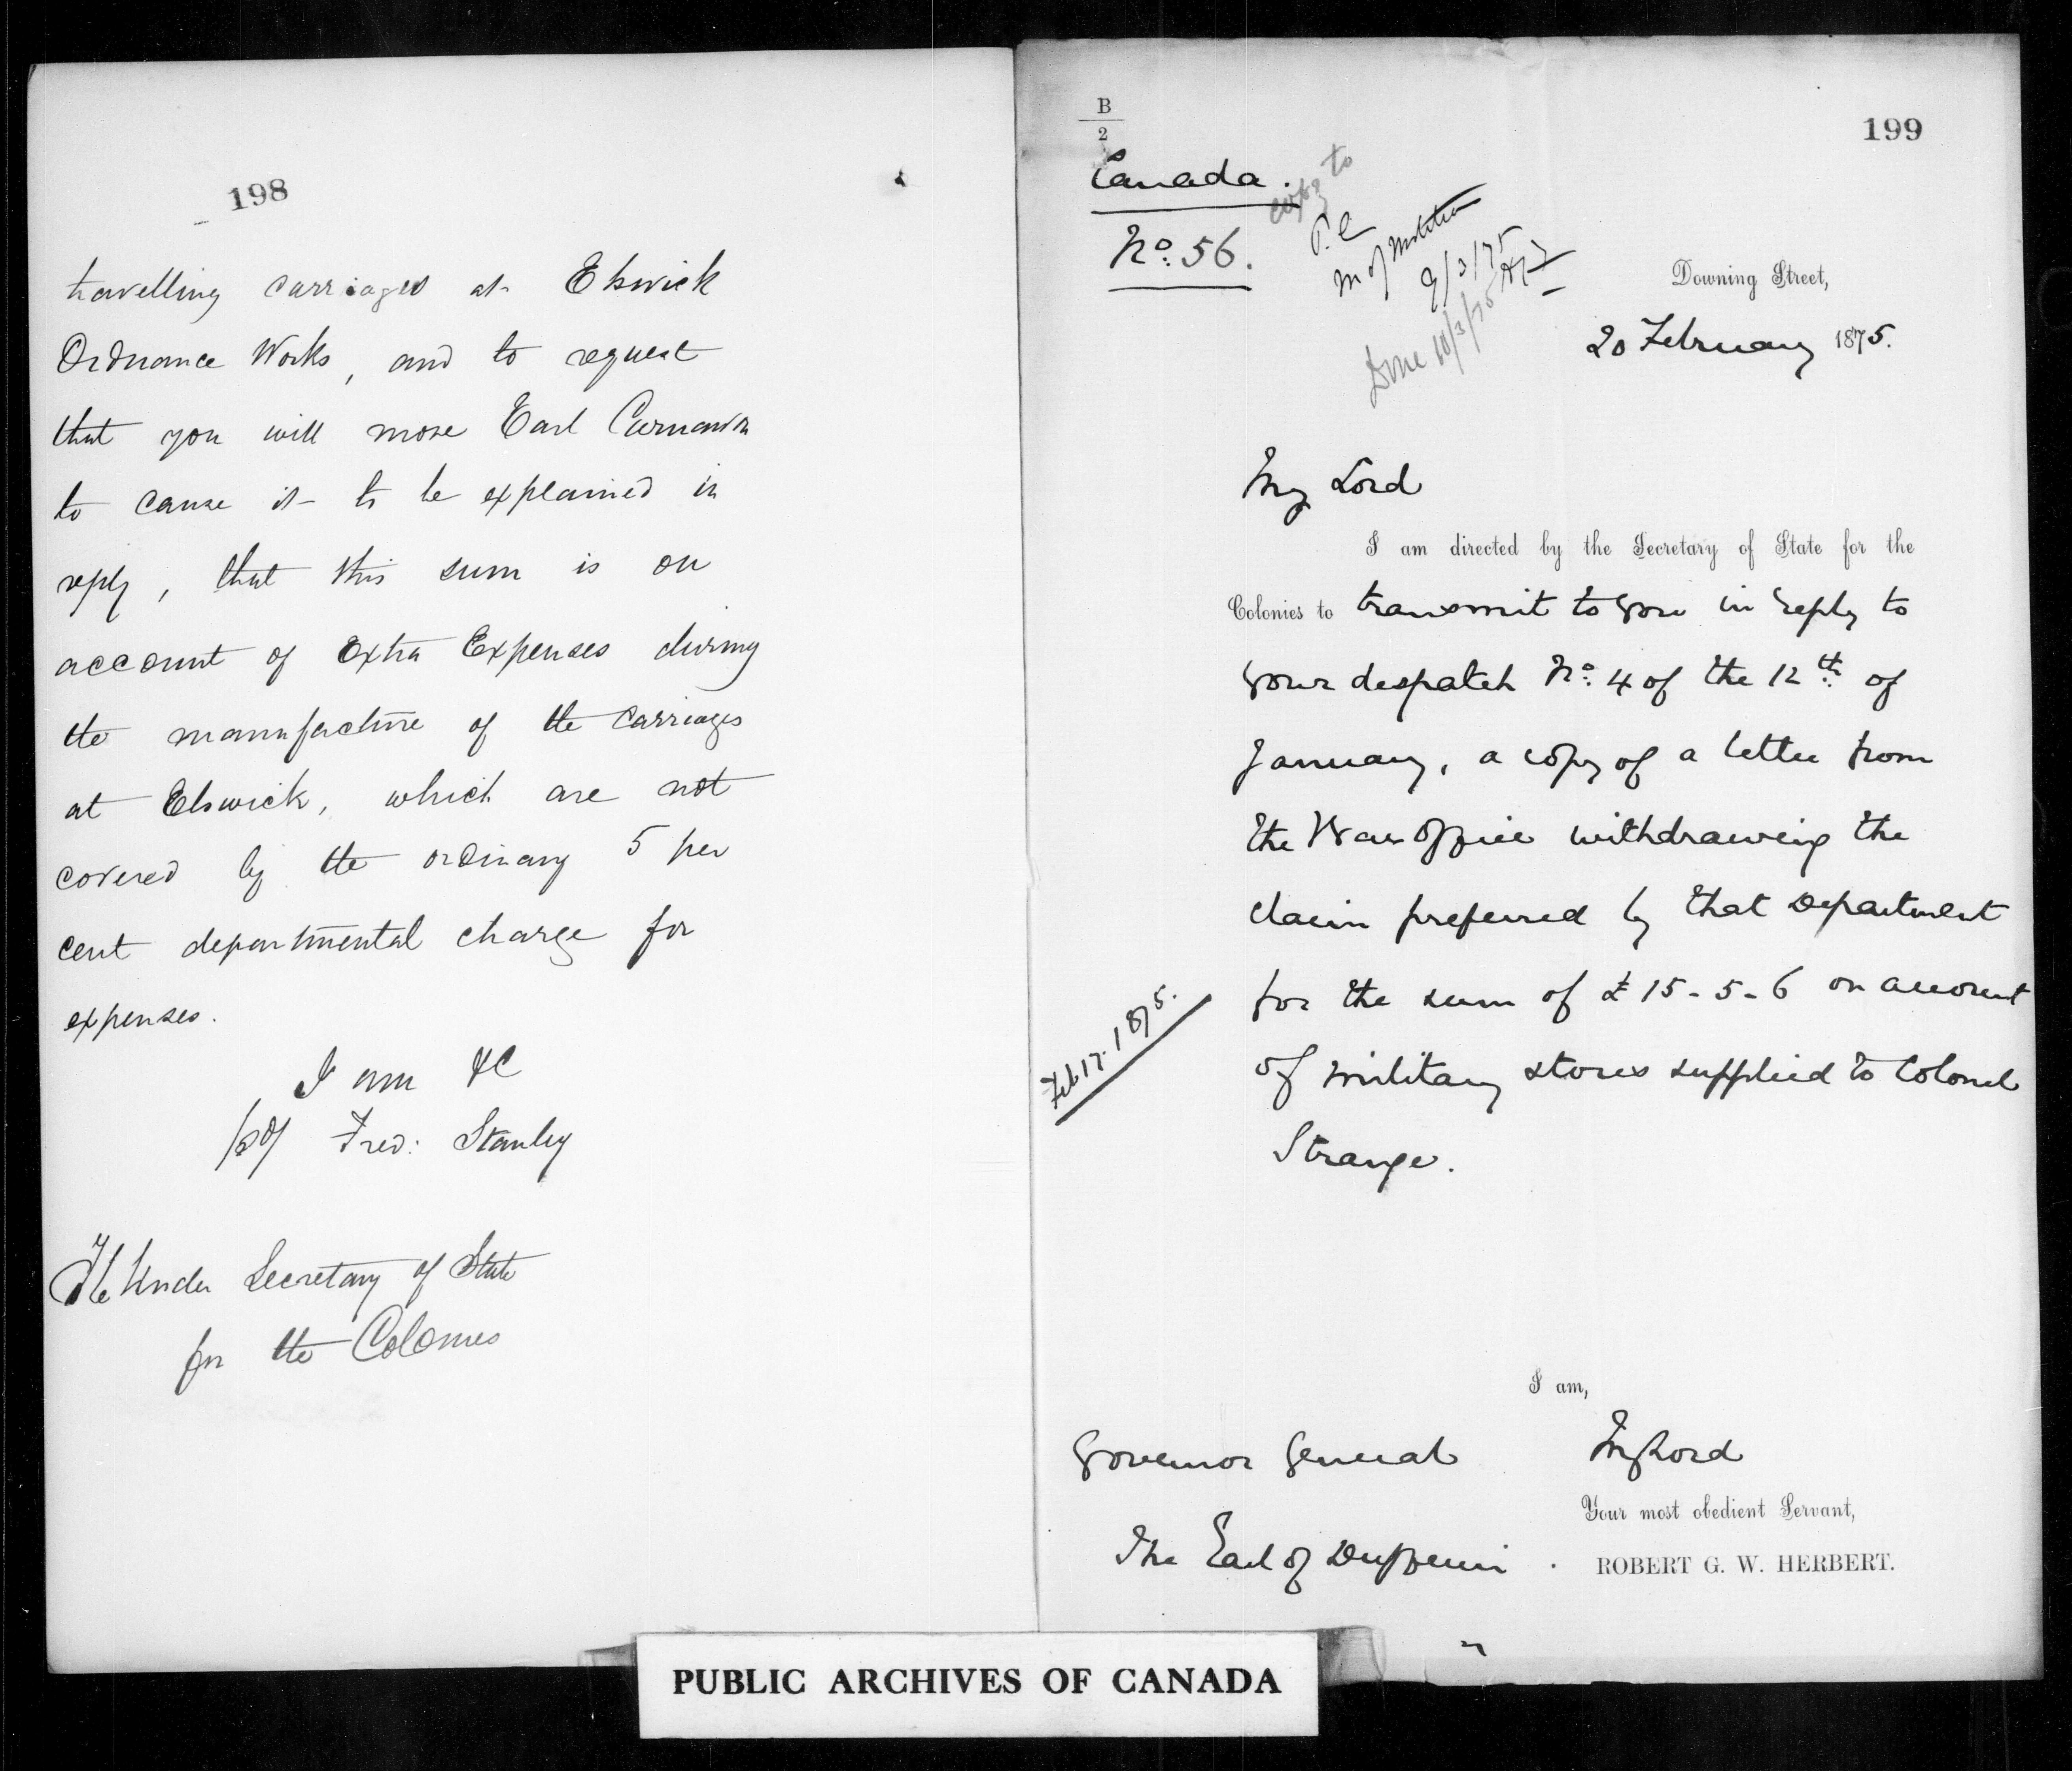 198
travelling carriages at Elswick
Ordnance Works, and to request
that you will move Earl Carnarvon
to cause it to be explained in
reply, that this sum is on
account of Extra Expenses during
the manufacture of the carriages
at Elswick, which are not
covered by the ordinary 5 per
cent departmental charge for
expenses.
I am &C
/sd/ Fred: Stanley
The Under Secretary of State
for the Colonies
B
2
199
Canada.
No. 56.
copy to
P.C
M of Militia
9/3/75
Done 10/3/75
Downing Street,
20 February 1875.
My Lord
I am directed by the Secretary of State for the
Colonies to transmit to you in reply to
your despatch No. 4 of the 12th. of
January, a copy of a letter from
the War Office withdrawing the
claim preferred by that Department
for the sum of £15-5-6 on account
of military stores supplied to Colonel
Strange.
Feb 17. 1875.
I am,
My Lord
Your most obedient Servant,
ROBERT G. W. HERBERT.
Governor General
The Earl of Dufferin
PUBLIC ARCHIVES OF CANADA